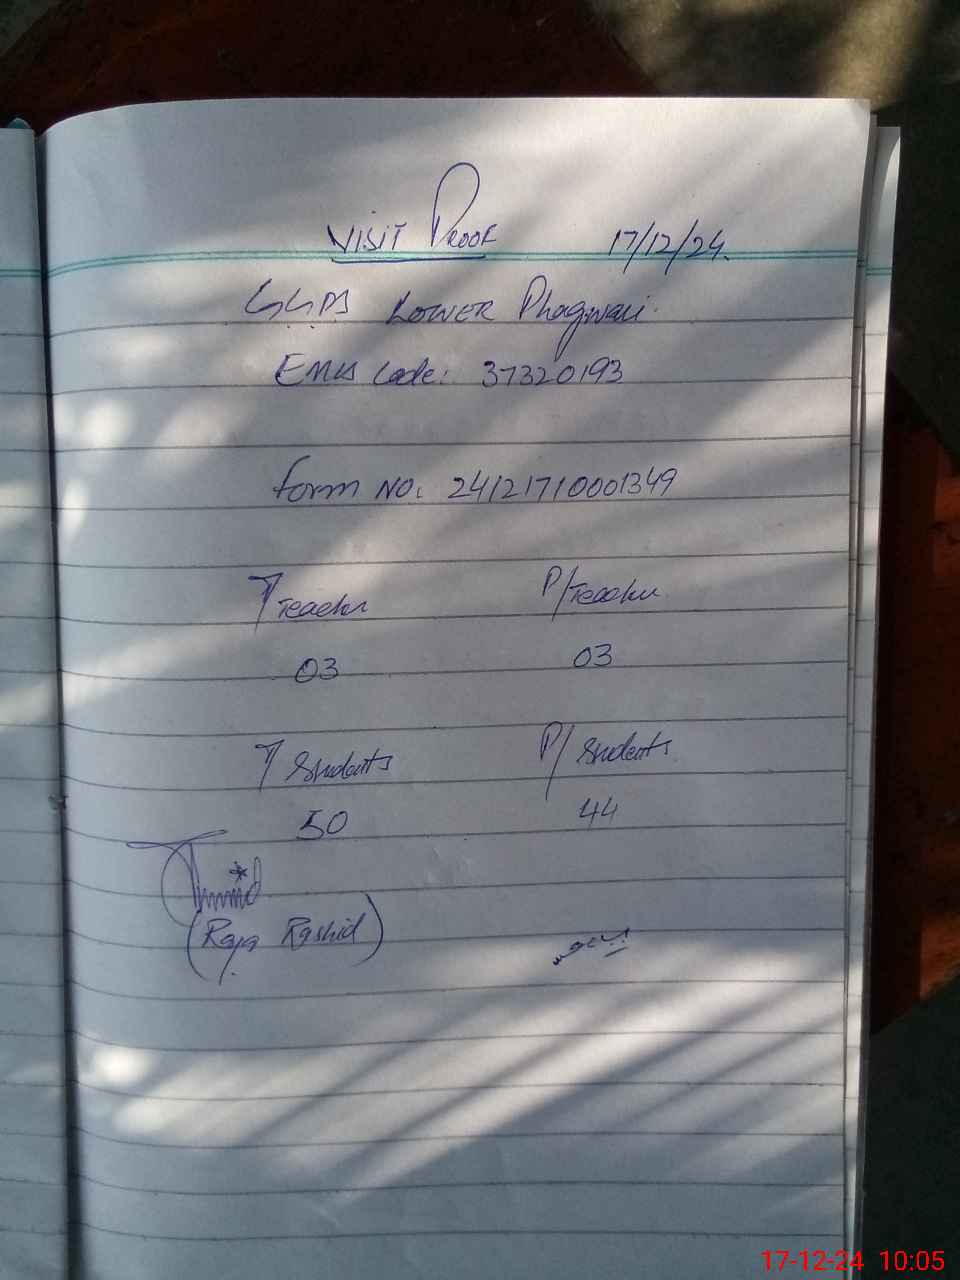 Visit Proof 17/12/24.
GGPS Lower Phagwari.
EMIS Code: 37320193
Form No: 24121710001349
T/Teacher P/Teacher
03 03
T/Students P/Students
50 44
(Raja Rashid)
17-12-24 10:05